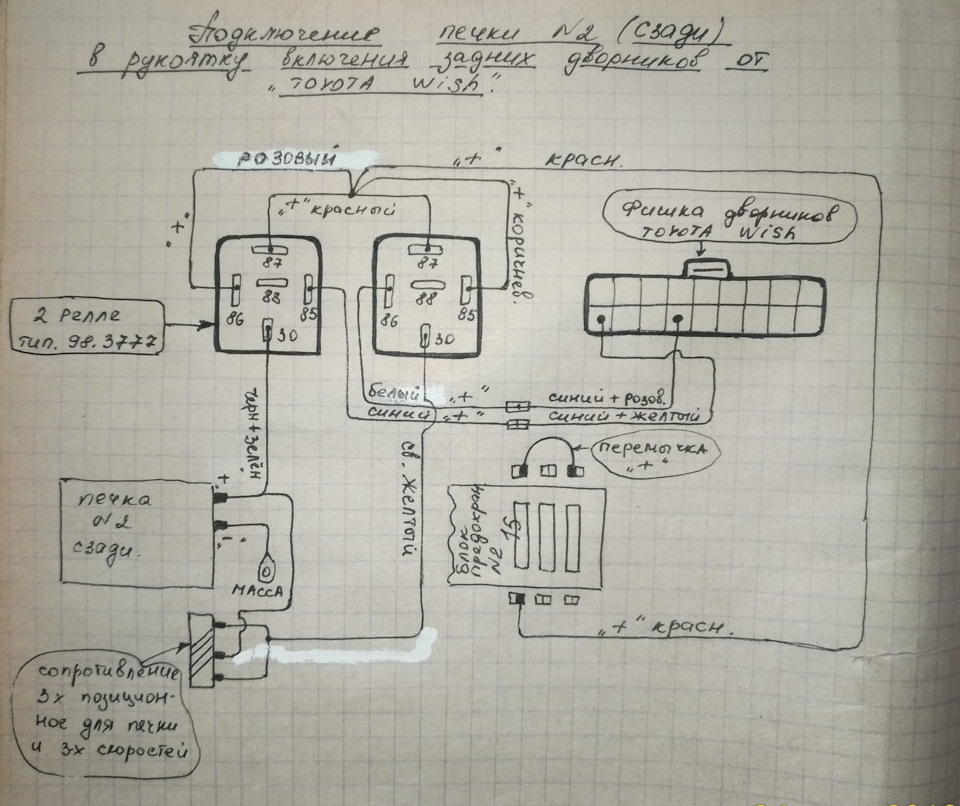 Подключение печки N2 (сзади)
в рукоятку включения задних дворников от
"TOYOTA Wish".
РОЗОВЫЙ
"+" красн.
"+"
"+" красный
"+" коричнев.
Фишка дворников
TOYOTA Wish
87
88
86
85
30
87
88
86
85
30
2 релле
тип. 98.3777
белый "+"
синий "+"
синий + розов.
синий + желтый
перемычка
"+"
св. желтый
+
"-"
печка
N2
сзади.
МАССА
Блок
N2
15
"+" красн.
сопротивление
3х позицион-
ное для печки
и 3-х скоростей